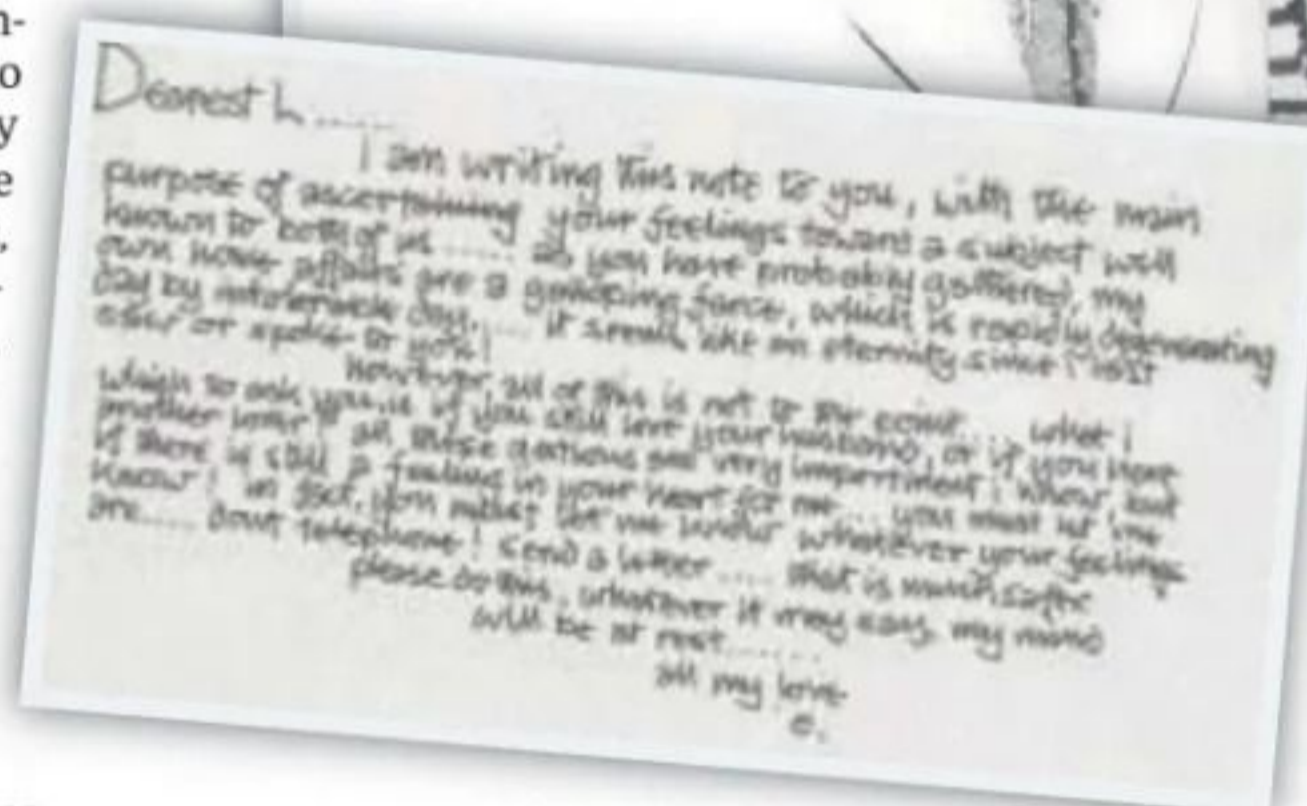 n-
o
y
e
,
Dearest L......
I am writing this note to you, with the main
purpose of ascertaining your feelings toward a subject well
known to both of us ...... as you have probably gathered, my
own home affairs are a galloping farce, which is rapidly degenerating
day by intolerable day...... it seems like an eternity since i last
saw or spoke to you!
However all of this is not to the point ... what i
wish to ask you is if you still love your husband, or if you have
another lover? all these questions are very impertinent i know, but
if there is still a feeling in your heart for me ... you must let me
know! in fact, you must let me know whatever your feelings
are..... dont telephone! send a letter .... that is much safer
please do this, whatever it may say, my mind
will be at rest.......
all my love
e.